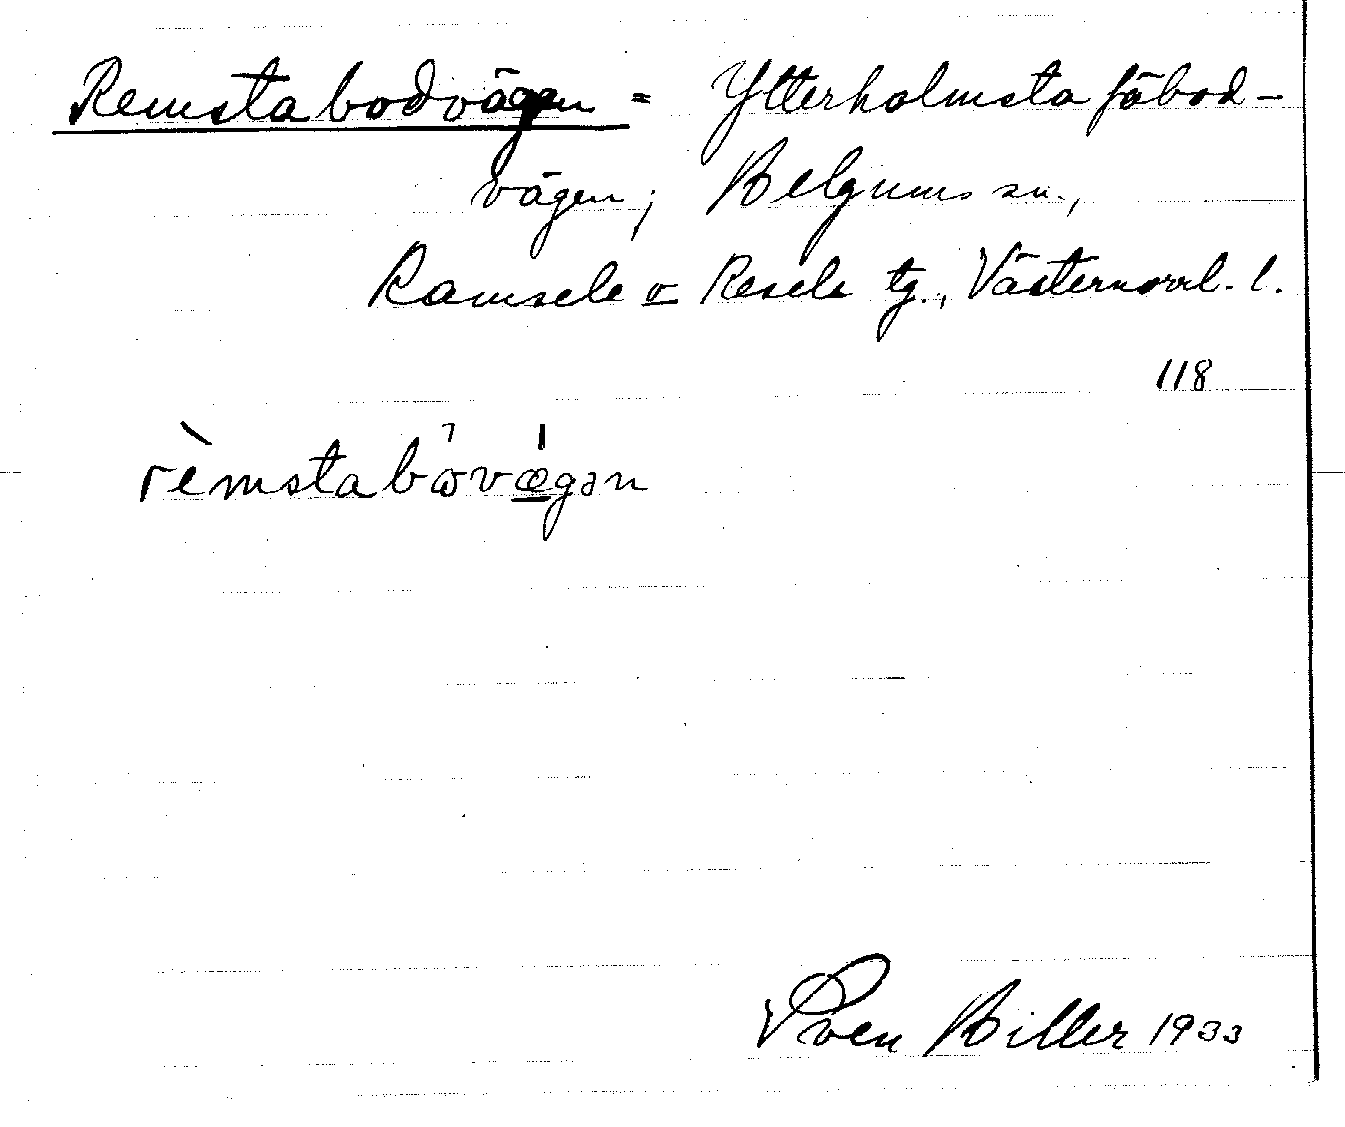 Remstabodvägen = Ytterholmsta fäbod-
vägen; Helgums sn.,
Ramsele o Resele tg., Västernorrl. l.
118
rèmstabωvægən
Sven Hiller 1933